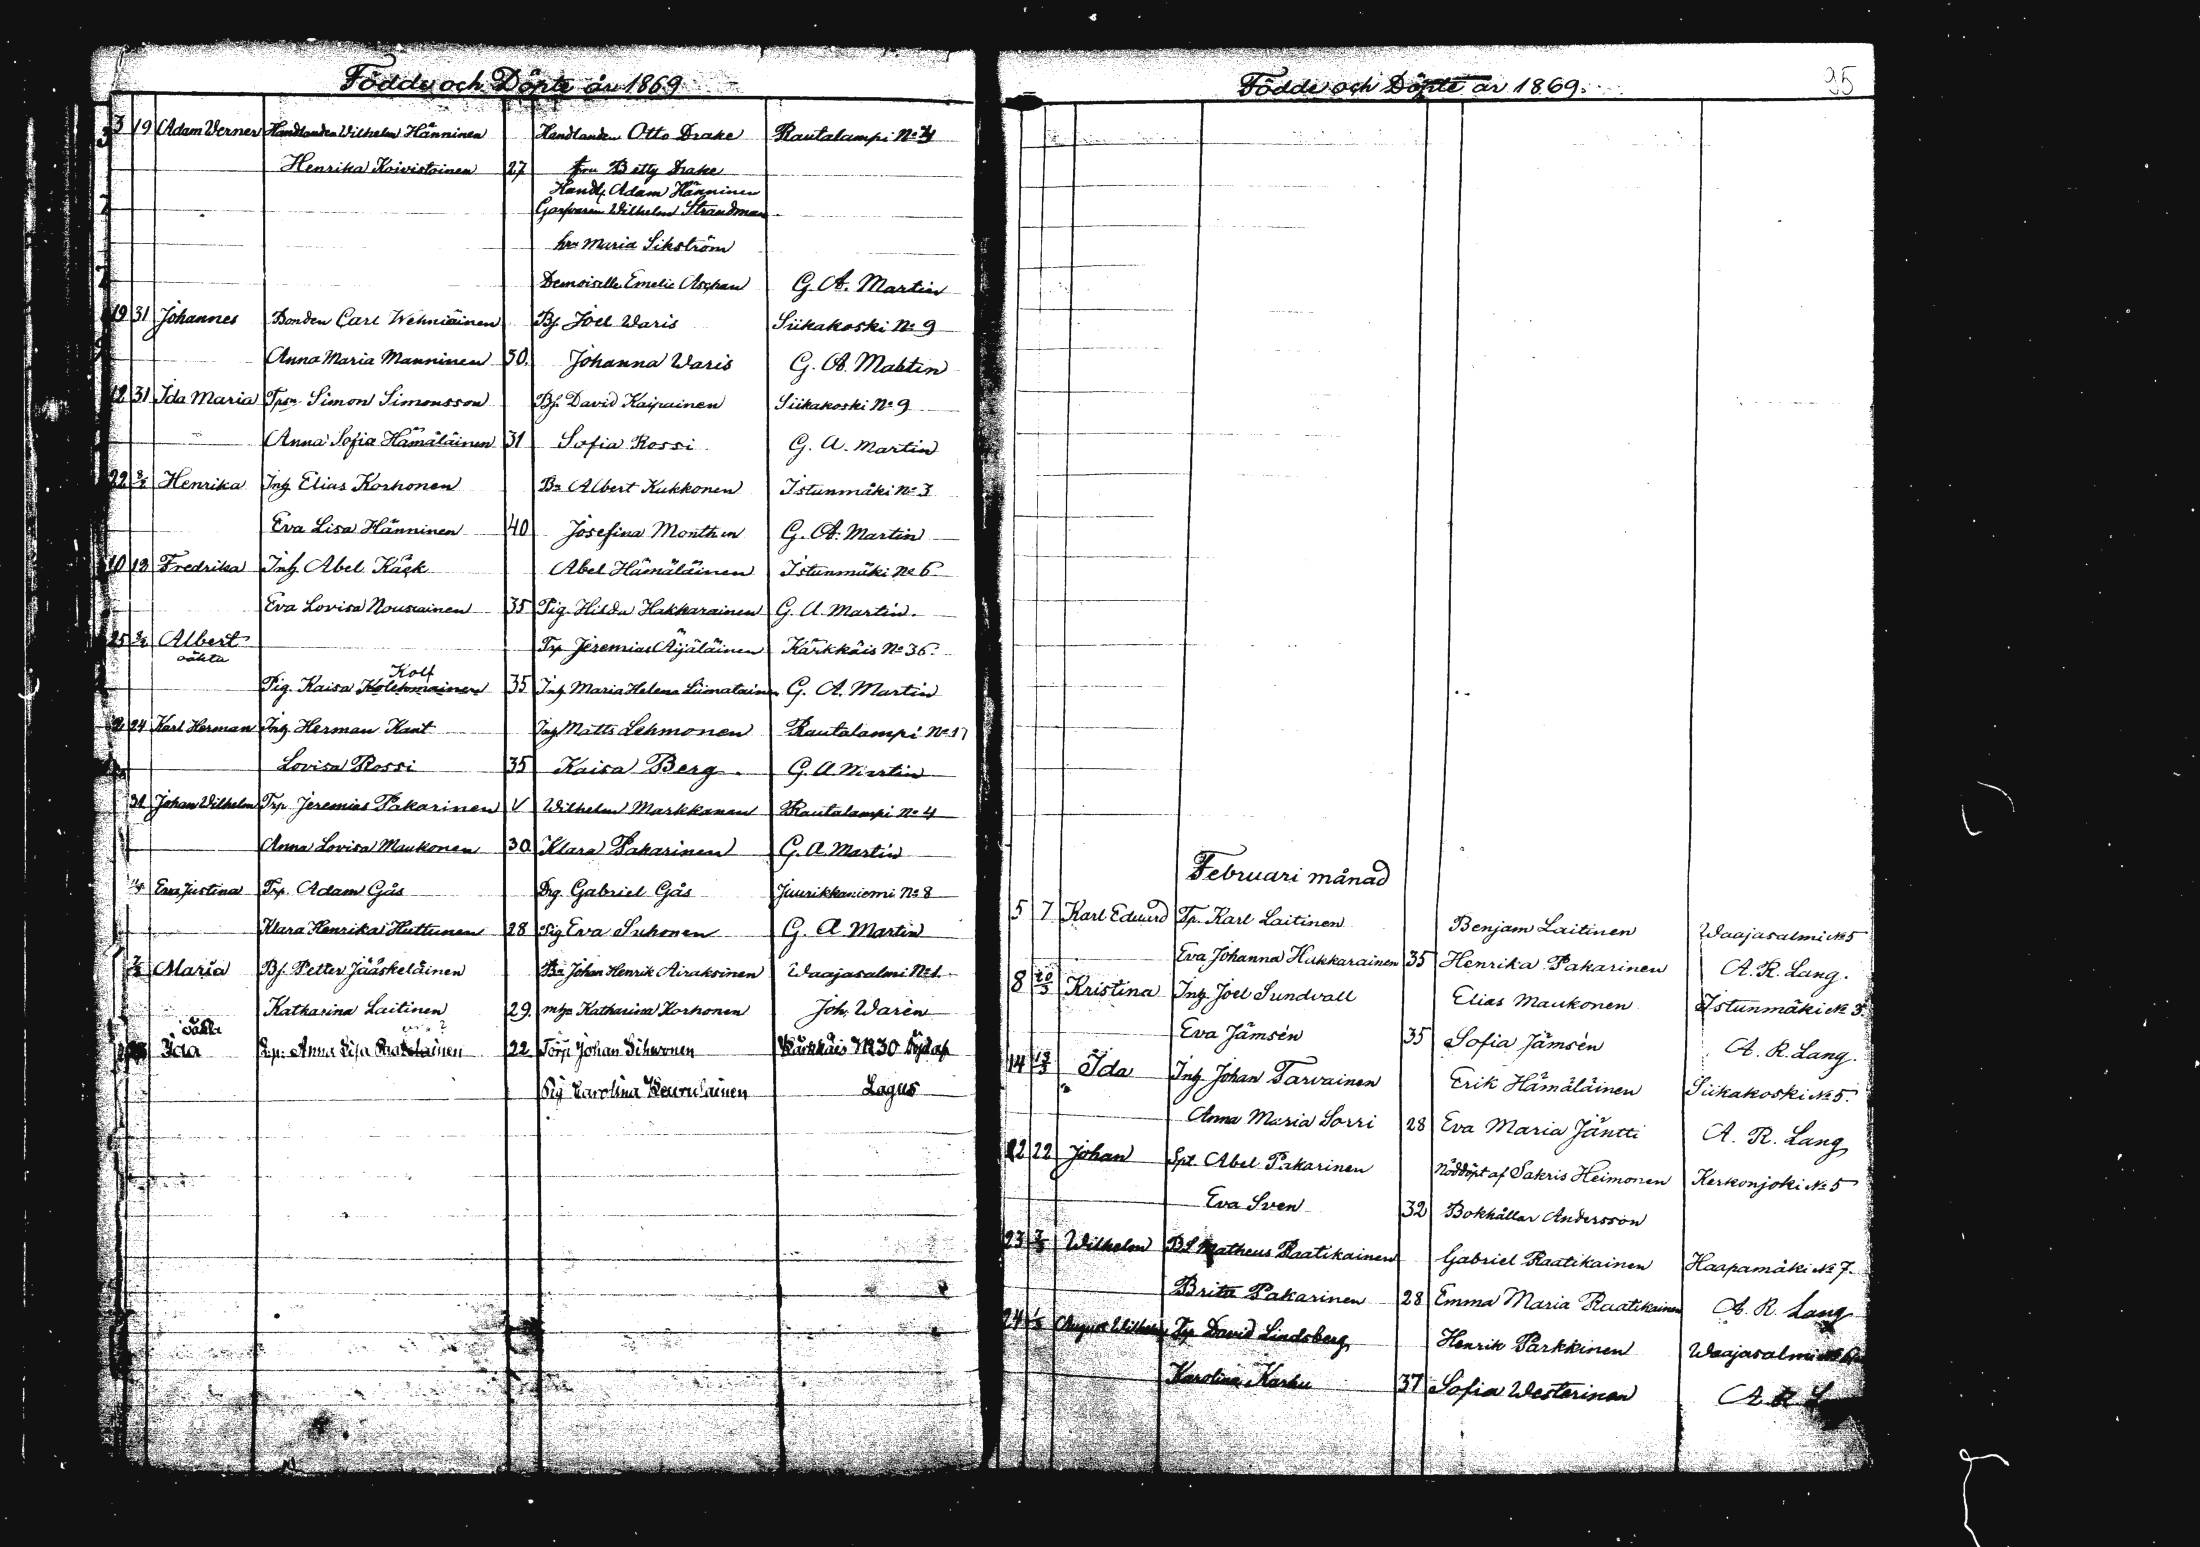 Födde och Döpte år 1869
3 19 Adam Verner Handlanden Wilhelm Hänninen Handlanden Otto Drake Rautalampi No 34
Henrika Koivistoinen 27 fru Betty Drake
Handl Adam Hänninen
Garfvaren Wilhelm Strandman
hru Maria Sikström
Demoiselle Emelie Aschan G. A. Martin
19 31 Johannes Bonden Carl Wehniäinen Bf Joel Waris Siikakoski No 9
Anna Maria Manninen 30. Johanna Waris G. A. Martin
12 31 Ida Maria Tpsn Simon Simonsson Bf. David Kaipainen Siikakoski No 9
Anna Sofia Hämäläinen 31 Sofia Rossi G. A. Martin
22 Henrika Inh Elias Korhonen Bn Albert Kukkonen Istunmäki No 3
Eva Lisa Hänninen 40 Josefina Monthen G. A. Martin
10 13 Fredrika Inh Abel Käck Abel Hämäläinen Istunmäki No 6
Eva Lovisa Nousiainen 35 Pig. Hilda Hakkarainen G. A. Martin.
25 Albert Trp Jeremias Äijäläinen Kärkkäis No 36.
oäkta
Kolf
Pig. Kaisa Kolehmainen 35 Inh Maria Helena Liimatainen G. A. Martin
24 Karl Herman Inh Herman Kant Inh Matts Lehmonen Rautalampi No 17
Lovisa Rossi 35 Kaisa Berg G. A. Martin
31 Johan Wilhelm Trp Jeremias Pakarinen V Wilhelm Markkanen Rautalampi No 4
Anna Lovisa Maukonen 30 Klara Pakarinen G. A. Martin
Eva Justina Trp. Adam Gås Drg Gabriel Gås Juurikkaniemi No 8
Klara Henrika Huttunen 28 Pig Eva Suhonen G. A. Martin
Maria Bf. Petter Jääskeläinen Bn Johan Henrik Airaksinen Waajasalmi No 1.
Katharina Laitinen 29. Katharina Korhonen Joh. Warén
oäkta
Ida Anna Lisa 22 Torp Johan Sihwonen Kärkkäis No 30
Pig Carolina Lagus
Födde och Döpte år 1869.
25
Februari månad
5 7 Karl Eduard Tp. Karl Laitinen Benjam Laitinen Waajasalmi No 5
Eva Johanna Hakkarainen 35 Henrika Pakarinen A. R. Lang.
8 20/3 Kristina Inh Joel Sundvall Elias Maukonen Istunmäki No 3.
Eva Jämsén 35 Sofia Jämsén A. R. Lang.
14 Ida Inh Johan Tarvainen Erik Hämäläinen Siikakoski No 5.
Anna Maria Sorri 28 Eva Maria Jäntti A. R. Lang
22 22 Johan Spt. Abel Pakarinen Nöddöpt af Sakris Heimonen Kerkonjoki No 5
Eva Sven 32 Bokhållar Andersson
23 Wilhelm Bf Matheus Raatikainen Gabriel Raatikainen Haapamäki No 7.
Brita Pakarinen 28 Emma Maria Raatikainen A. R. Lang
24 August Wilhelm Trp David Lindsberg Henrik Parkkinen Waajasalmi
Karolina Karhu 37 Sofia Westerinen A. R. L